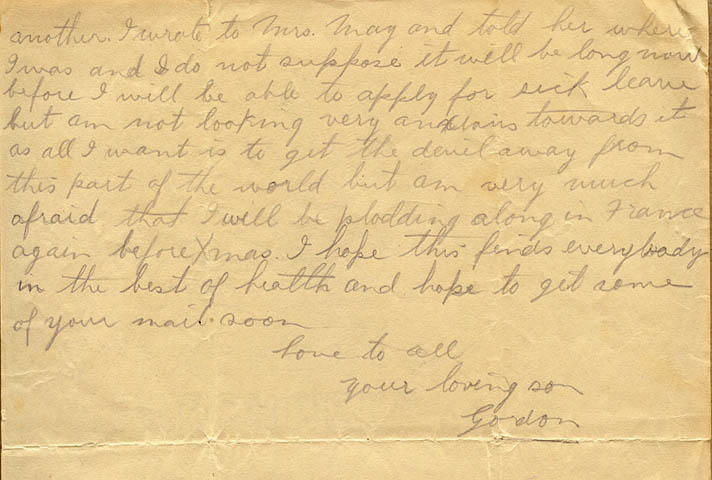 another. I wrote to Mrs. May and told her where
I was and I do not suppose it will be long now
before I will be able to apply for sick leave
but am not looking very anxious towards it
as all I want is to get the devil away from
this part of the world but am very much
afraid that I will be plodding along in France
again before Xmas. I hope this finds everybody
in the best of health and hope to get some
of your mail soon
Love to all
your loving son
Gordon